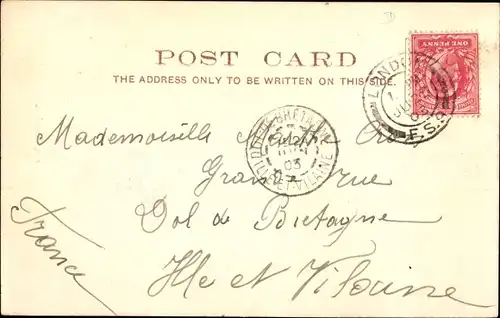 POST CARD
THE ADDRESS ONLY TO BE WRITTEN ON THIS SIDE
ONE PENNY
LONDON
F.S.
DOL-DE-BRETAGNE
03
ET-VILAINE
Mademoiselle
Grande rue
Dol de Bretagne
Ille et Vilaine
France